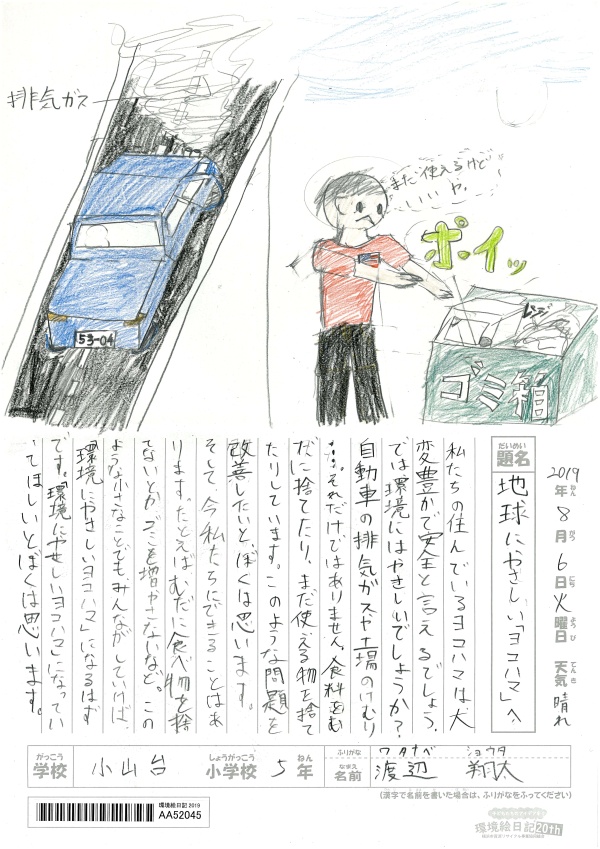 排気ガス
53-04
まだ使えるけど
いいや。
ポイッ
レンジ
ゴミ箱
2019年8月6日火曜日 天気 晴れ
ねん がつ にち ようび てんき
だいめい
題名
地球にやさしい「ヨコハマ」へ
私たちの住んでいるヨコハマは大
変豊かで安全と言えるでしょう。
では環境にはやさしいでしょうか?
自動車の排気ガスや工場のけむり
…。それだけではありません。食料をむ
だに捨てたり、まだ使える物を捨て
たりしています。このような問題を
改善したいと、ぼくは思います。
そして、今私たちにできることはあ
ります。たとえばむだに食べ物を捨
てないとか、ゴミを増やさないなど。この
ような小さなことでも、みんながしていけば、
「環境にやさしいヨコハマ」になるはず
です。「環境にやさしいヨコハマ」になってい
ってほしいとぼくは思います。
がっこう しょうがっこう ねん
学校 小山台 小学校 5年
ふりがな ワタナベ ショウタ
なまえ
名前 渡辺 翔太
(漢字で名前を書いた場合は、ふりがなをふってください)
環境絵日記2019
AA52045
環境絵日記20th